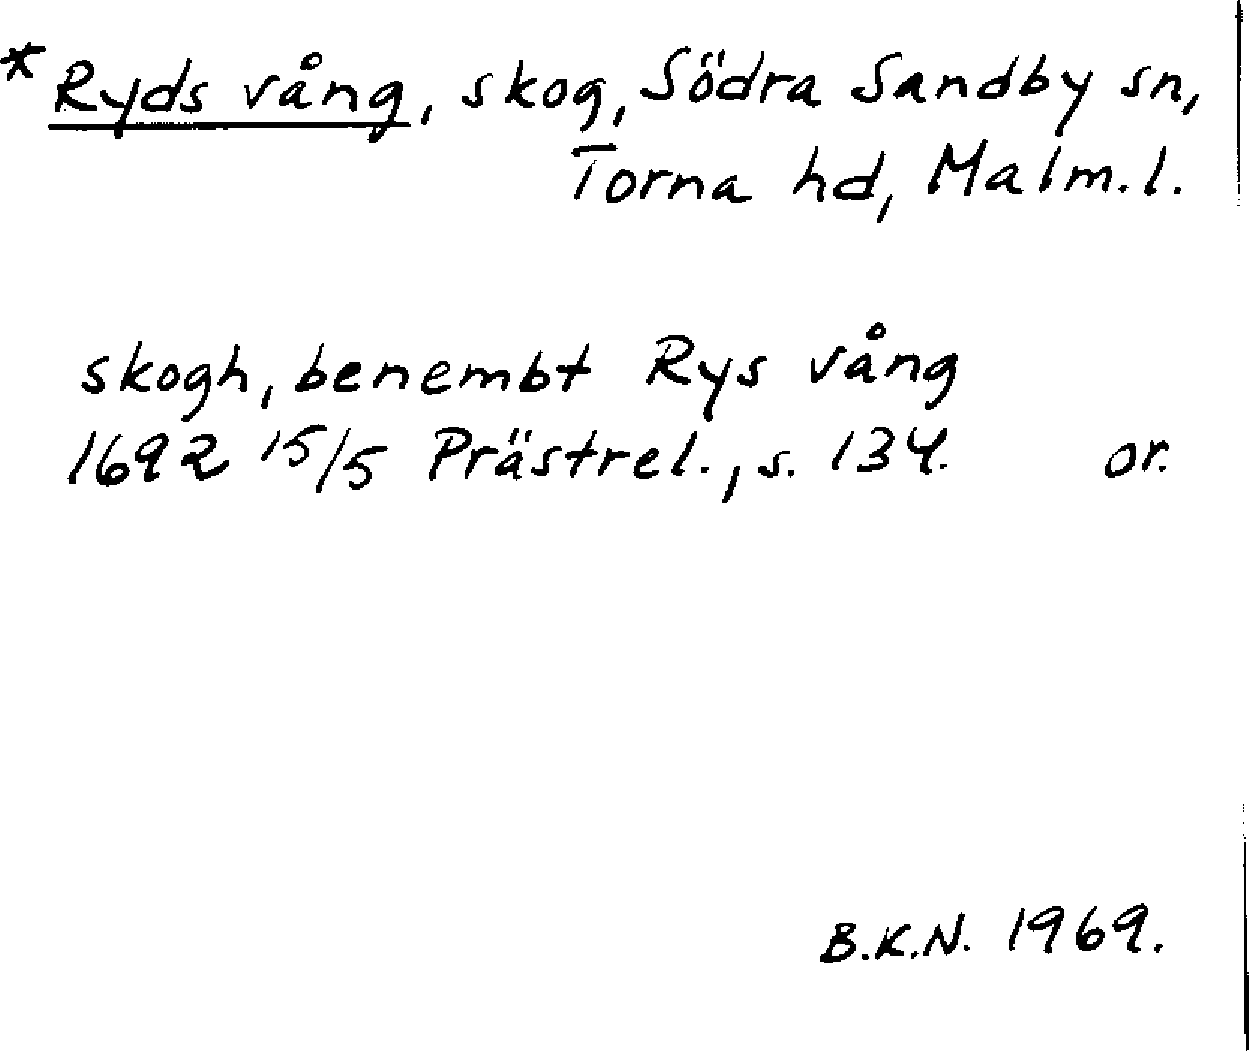 * Ryds vång, skog, Södra Sandby sn,
Torna hd, Malm.l.
skogh, benembt Rys vång
1692 15/5 Prästrel., s. 134. or.
B.K.N. 1969.